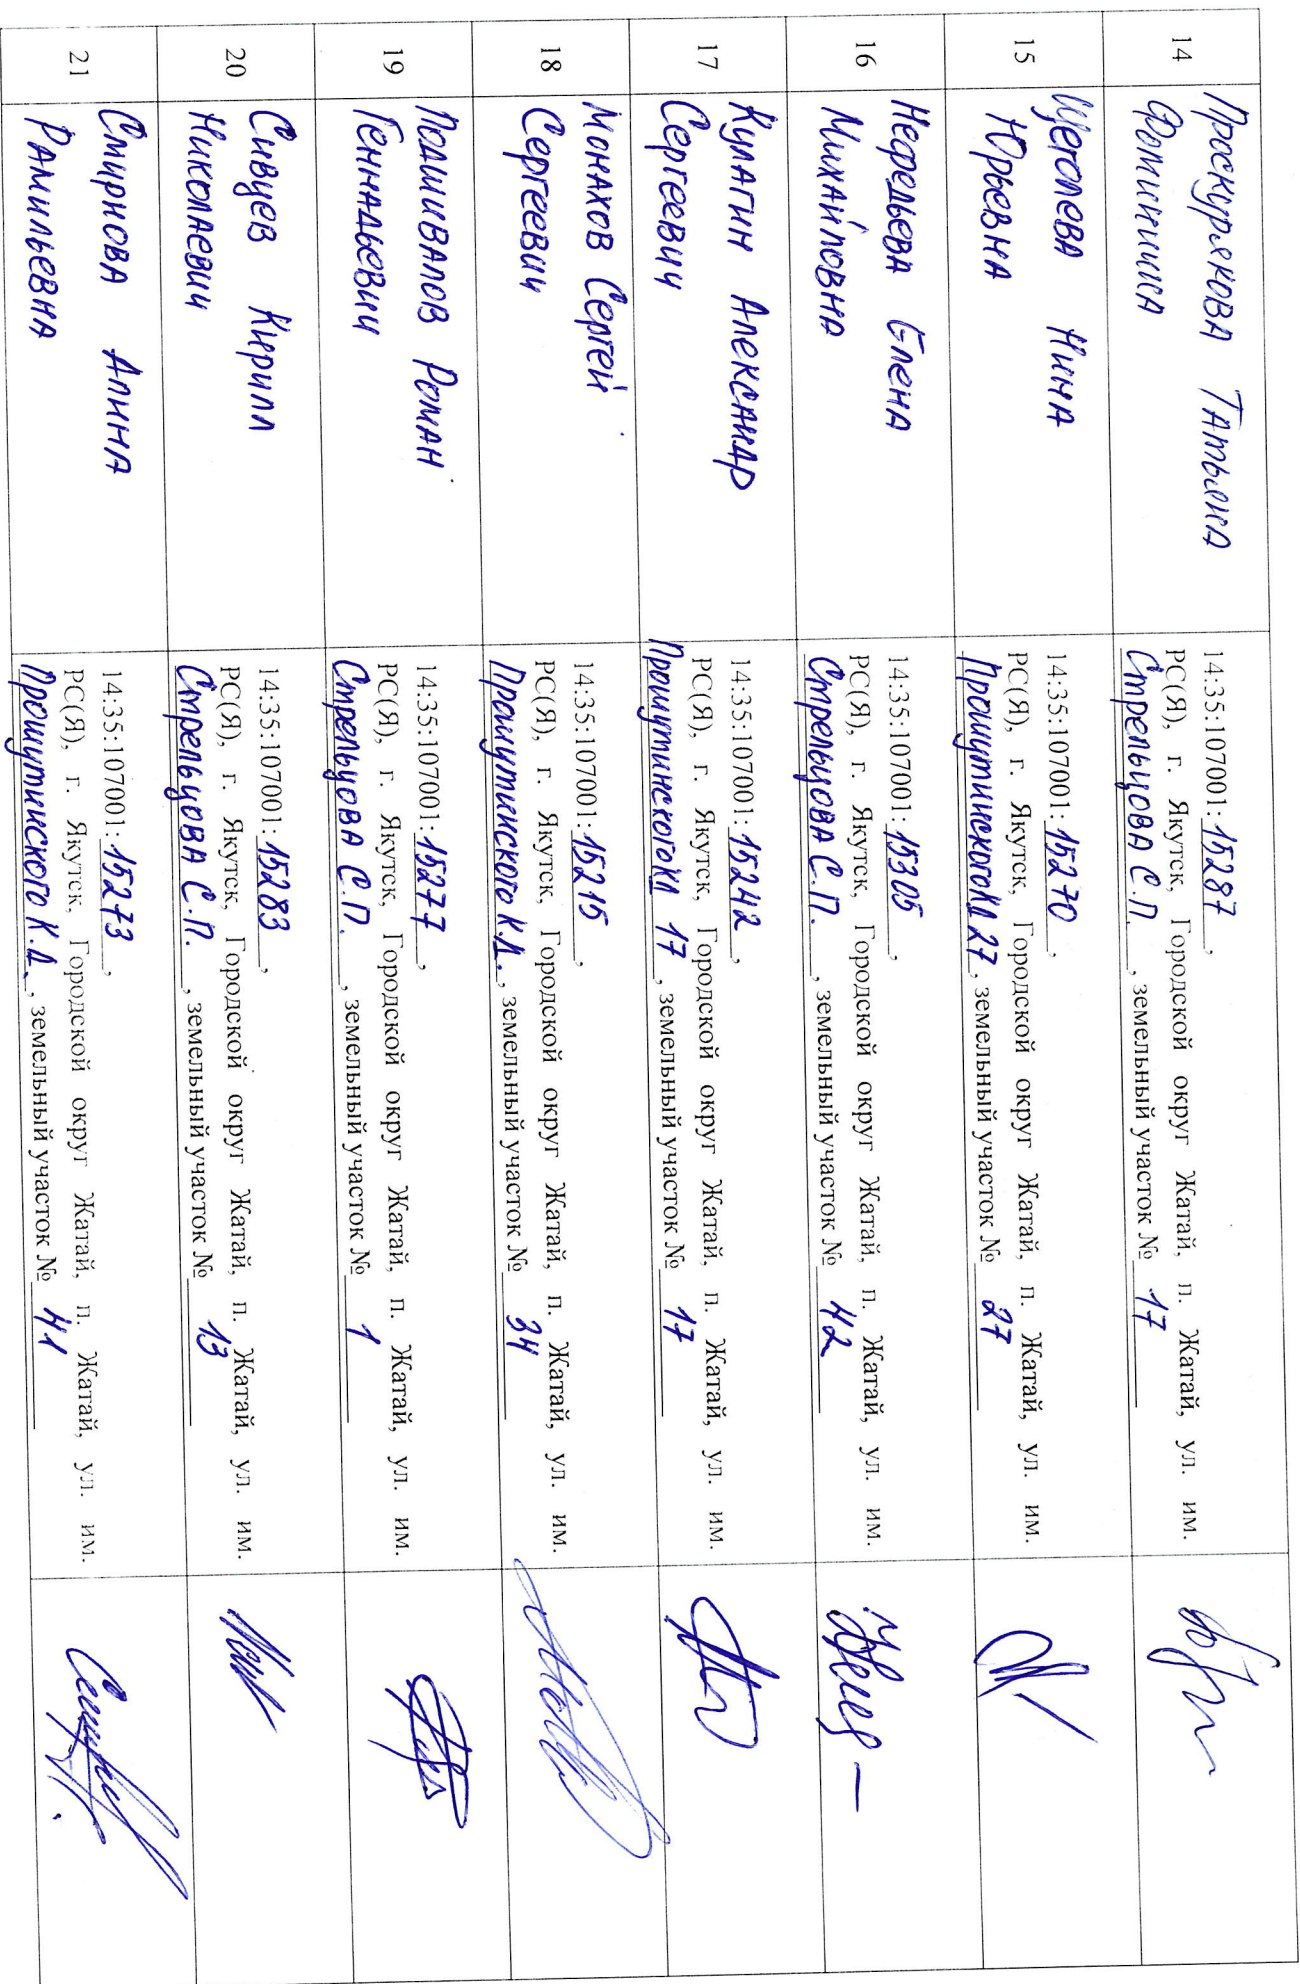 14
Проскурякова Татьяна
14:35:107001:15287,
РС(Я), г. Якутск, Городской округ Жатай, п. Жатай, ул. им.
Стрельцова С.П., земельный участок № 17
15
Щеголева Нина
Юрьевна
14:35:107001:15270,
РС(Я), г. Якутск, Городской округ Жатай, п. Жатай, ул. им.
Прошутинского 27, земельный участок № 27
16
Нефедьева Елена
Михайловна
14:35:107001:15305,
РС(Я), г. Якутск, Городской округ Жатай, п. Жатай, ул. им.
Стрельцова С.П., земельный участок № 42
17
Кулагин Александр
Сергеевич
14:35:107001:15242,
РС(Я), г. Якутск, Городской округ Жатай, п. Жатай, ул. им.
Прошутинского КД 17, земельный участок № 17
18
Монахов Сергей
Сергеевич
14:35:107001:15215,
РС(Я), г. Якутск, Городской округ Жатай, п. Жатай, ул. им.
Прошутинского К.Д., земельный участок № 34
19
Подшивалов Роман
Геннадьевич
14:35:107001:15277,
РС(Я), г. Якутск, Городской округ Жатай, п. Жатай, ул. им.
Стрельцова С.П., земельный участок № 1
20
Сивцев Кирилл
Николаевич
14:35:107001:15283,
РС(Я), г. Якутск, Городской округ Жатай, п. Жатай, ул. им.
Стрельцова С.П., земельный участок № 13
21
Смирнова Алина
Рамильевна
14:35:107001:15273,
РС(Я), г. Якутск, Городской округ Жатай, п. Жатай, ул. им.
Прошутинского К.Д., земельный участок № 41